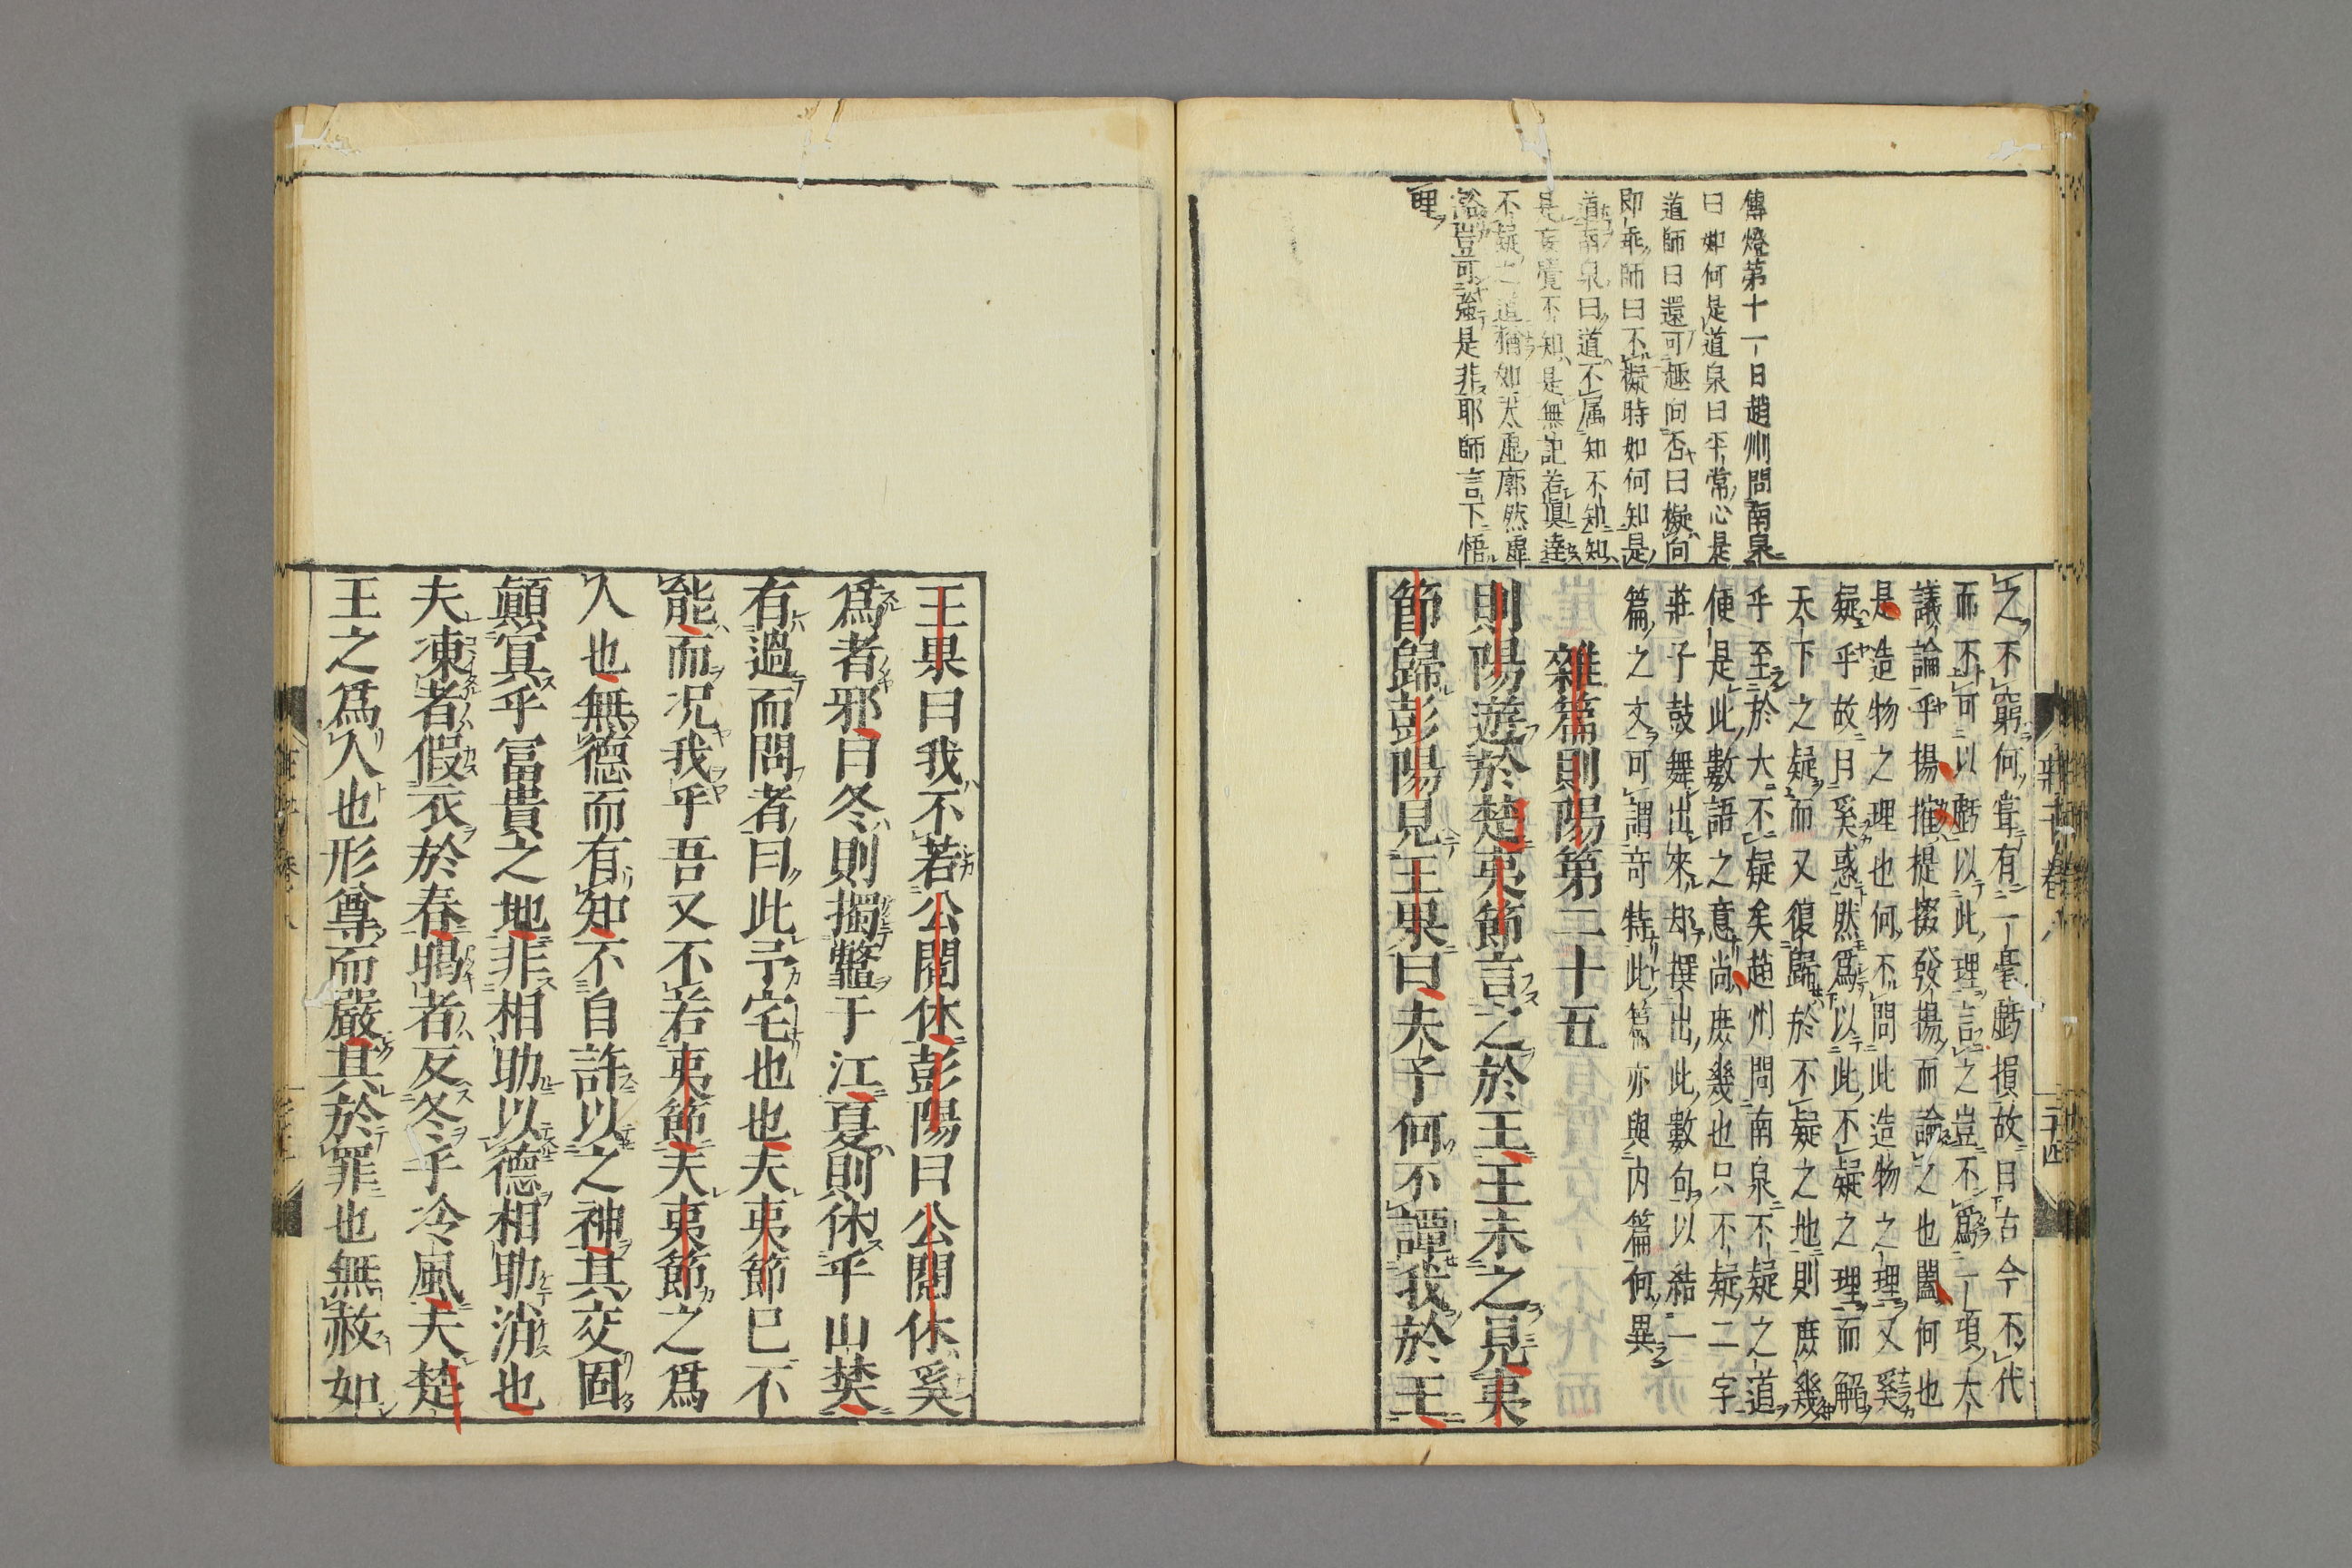 傳燈第十一曰趙州問南泉
曰如何是道泉曰平常心是
道師曰還可趣向否曰擬向
即乖師曰不擬時如何知是
道南泉曰道不属知不知知
是妄覺不知是無記若眞達
不疑之道猶如太虚廓然虚
豁豈可強是非耶師言下悟
理
之不窮何甞有一毫虧損故曰古今不代
而不可以虧以此理言之豈不爲一項大
議論乎揚搉提掇發揚而論之也闔何也
是造物之理也何不問此造物之理又奚
疑乎故曰奚惑然爲以此不疑之理而解
天下之疑而又復歸於不疑之地則庶幾
乎至於大不疑矣趙州問南泉不疑之道
便是此數語之意尚庶幾也只不疑二字
莊子鼓舞出來却撰出此數句以結一
篇之文可謂竒特此篇亦與内篇何異
雜篇則陽第二十五
則陽遊於楚夷節言之於王王未之見夷
節歸彭陽見王果曰夫子何不譚我於王
王果曰我不若公閱休彭陽曰公閱休奚
爲者邪曰冬則擉鼈于江夏則休乎山樊
有過而問者曰此予宅也也夫夷節已不
能而况我乎吾又不若夷節夫夷節之爲
人也無德而有知不自許以之神其交固
顚冥乎冨貴之地非相助以德相助消也
夫凍者假衣於春暍者反冬乎冷風夫楚
王之爲人也形尊而嚴其於罪也無赦如